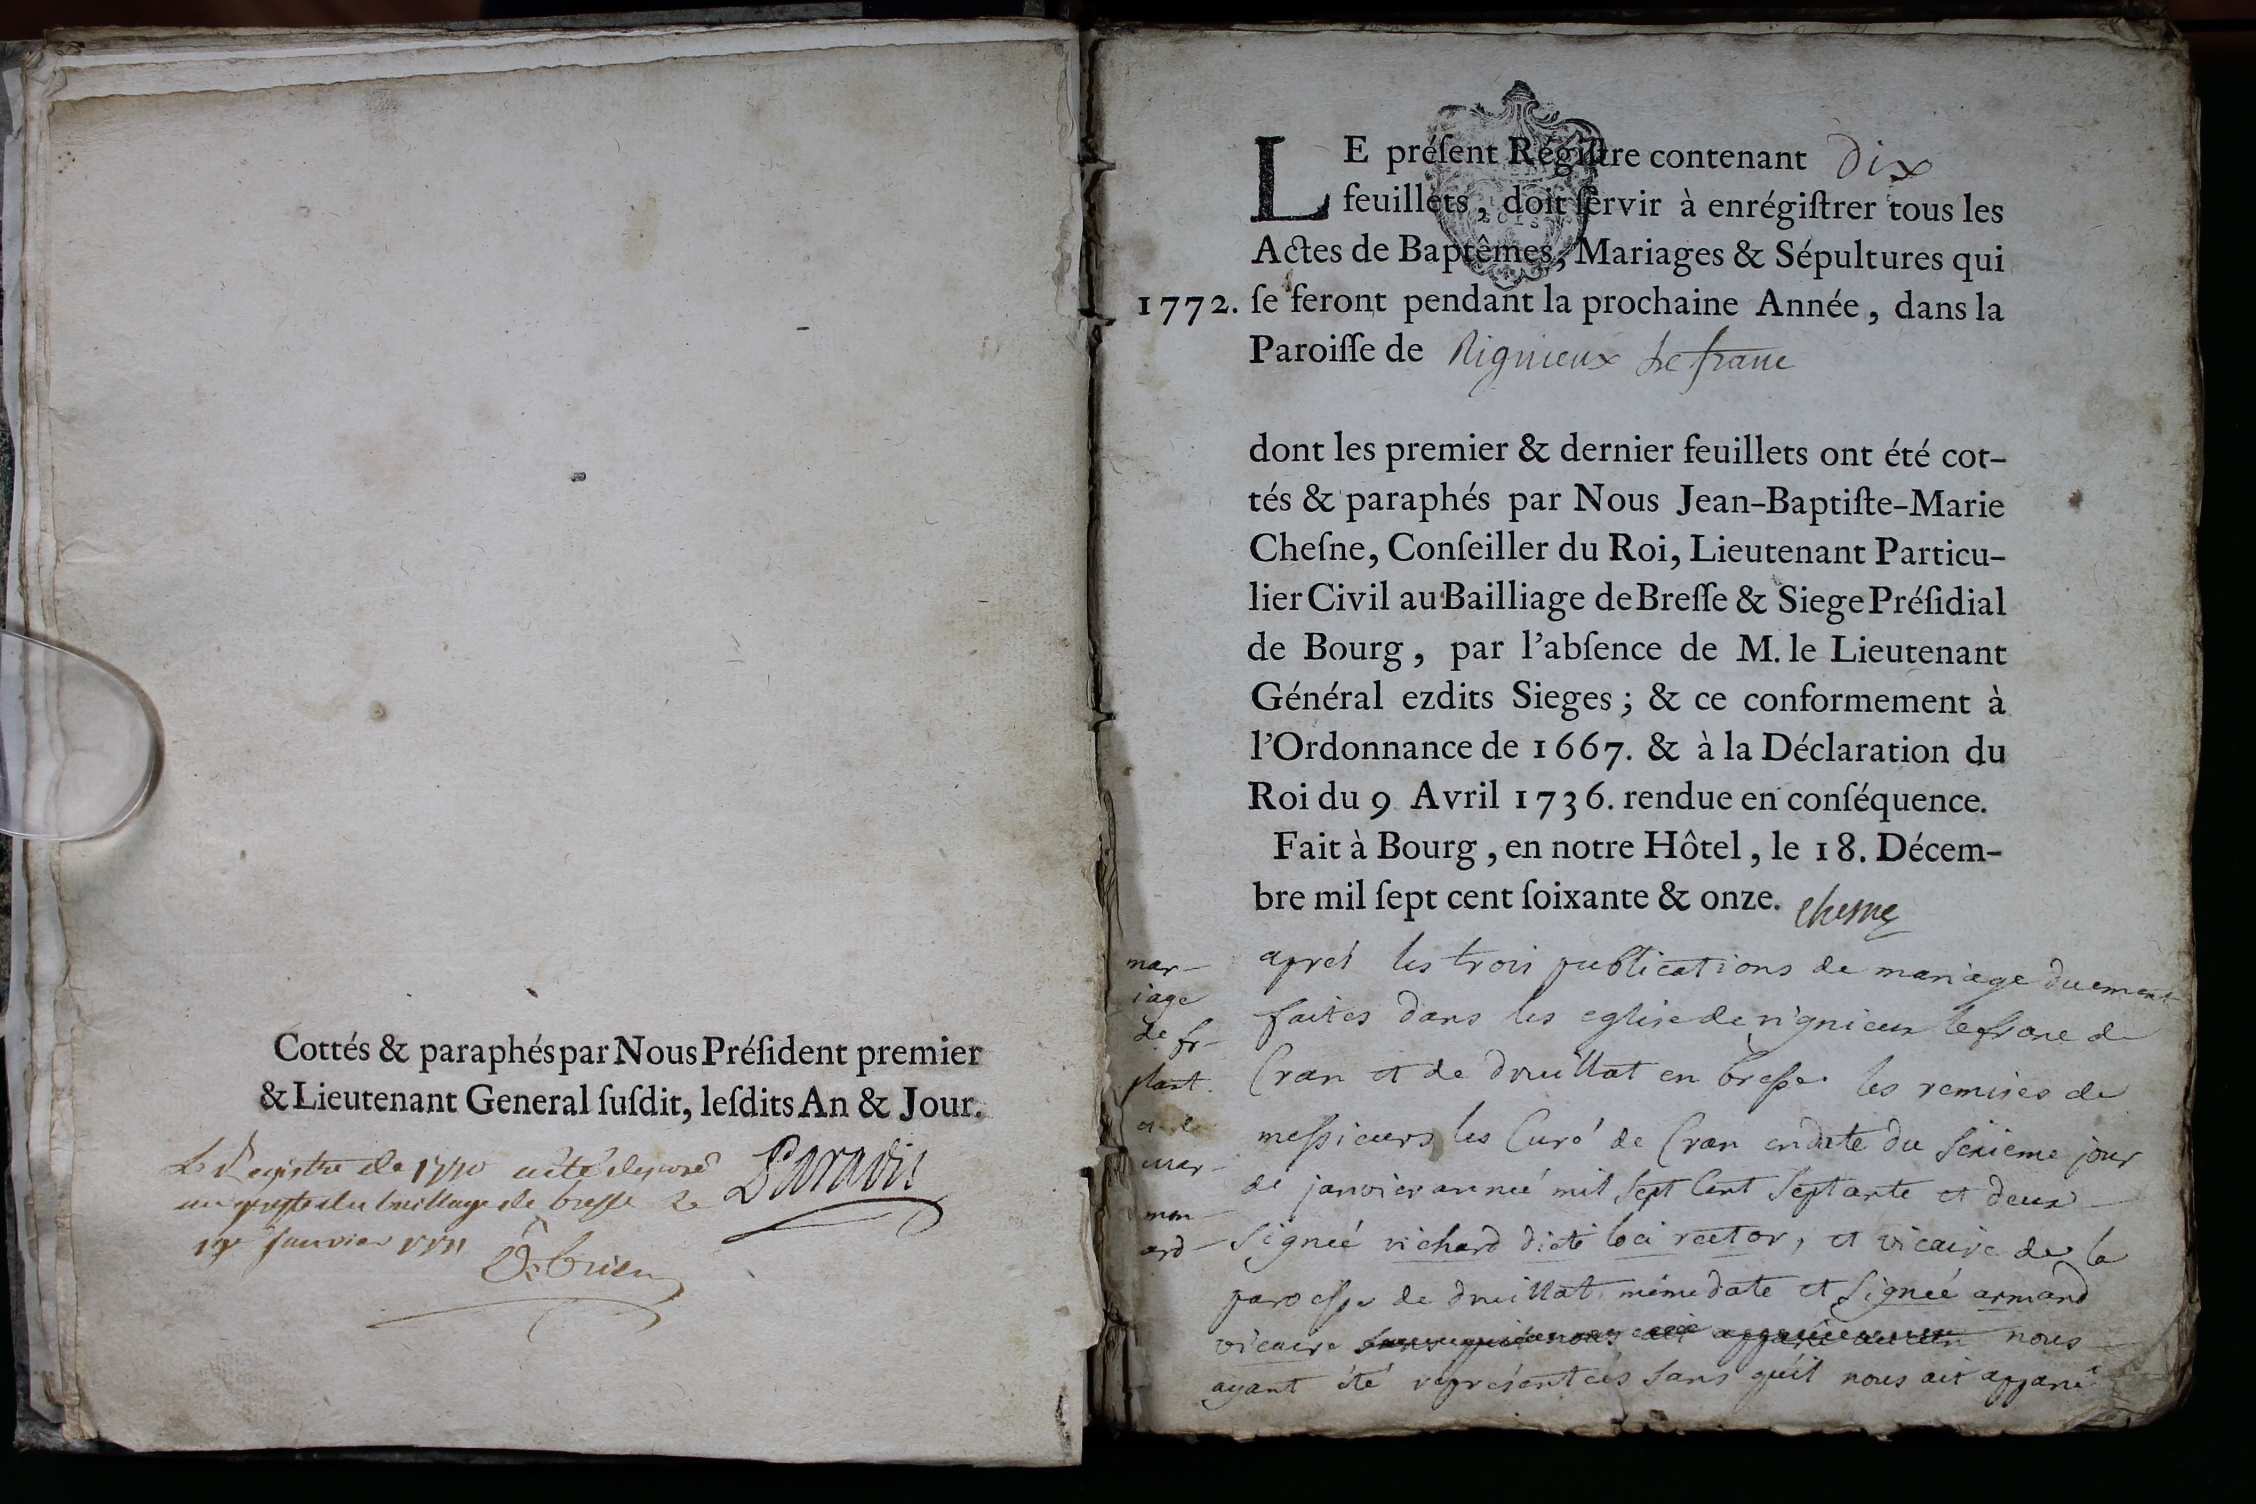 Cottés & paraphés par Nous Préſident premier
& Lieutenant General ſuſdit, leſdits An & Jour.
Le Registre de 1770 a été deposé
au greffe du bailliage de bresse le
Paradis
janvier 1771
LE préſent Régiſtre contenant Dix
feuillets, doit ſervir à enrégiſtrer tous les
Actes de Baptêmes, Mariages & Sépultures qui
1772. ſe feront pendant la prochaine Année, dans la
Paroiſſe de Rignieux Le franc
dont les premier & dernier feuillets ont été cot-
tés & paraphés par Nous Jean-Baptiſte-Marie
Cheſne, Conſeiller du Roi, Lieutenant Particu-
lier Civil au Bailliage de Breſſe & Siege Préſidial
de Bourg, par l'abſence de M. le Lieutenant
Général ezdits Sieges; & ce conformement à
l'Ordonnance de 1667. & à la Déclaration du
Roi du 9 Avril 1736. rendue en conſéquence.
Fait à Bourg, en notre Hôtel, le 18. Décem-
bre mil ſept cent ſoixante & onze. Chesne
mar-
iage
de fr-
mar-
ard
aprés les trois publications de mariage duement
faites dans les eglise de rignieux le franc de
Cran et de druillat en bresse les remises de
messieurs les Curé de Cran en date du seizieme jour
de janvier année mil sept Cent septante et deux
signée vichard dicti loci rector, et vicaire de la
paroesse de druillat même date et signeé armand
vicaire nous
ayant été representées sans quil nous ait apparu